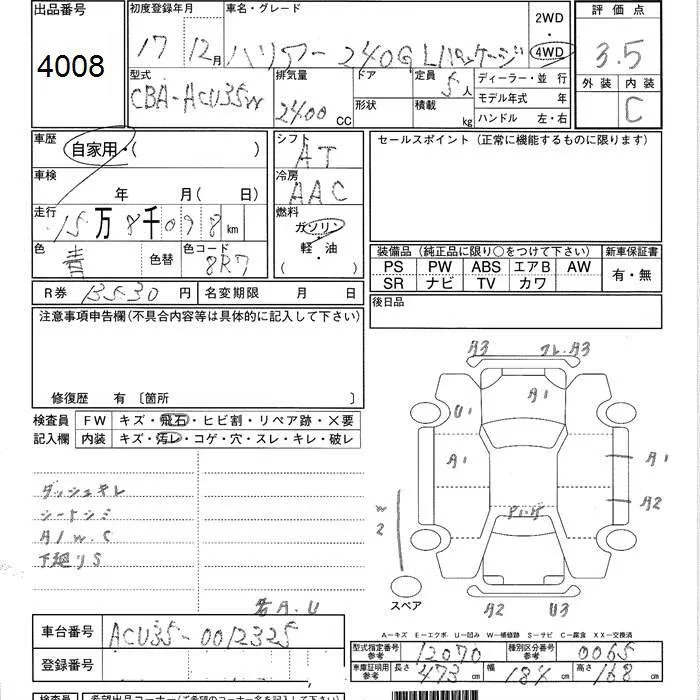 出品番号 初度登録年月 車名・グレード 評価点
4008 17 12月 ハリアー 240G Lパッケージ 2WD・4WD 3.5
型式 排気量 ドア 定員 ディーラー・並行 外装 内装
CBA-ACU35W 2400CC 形状 5人 積載 kg モデル年式 年 C
ハンドル 左・右
車歴 自家用・( ) シフト AT セールスポイント (正常に機能するものに限ります)
車検 年 月( 日) 冷房 AAC
走行 15万8千098km 燃料 ガソリン・軽・油 ( )
色 青 色替 色コード 8R7
装備品 (純正品に限り○をつけて下さい) 新車保証書
PS PW ABS エアB AW 有・無
SR ナビ TV カワ
R券 13530円 名変期限 月 日 後日品
注意事項申告欄(不具合内容等は具体的に記入して下さい)
修復歴 有 〔箇所 〕
検査員 FW キズ・飛石・ヒビ割・リペア跡・×要
記入欄 内装 キズ・汚レ・コゲ・穴・スレ・キレ・破レ
A3 フレ.A3
A1
U1
A1 A1
A2
W2
ダッシュキレ
シートシミ
A/W.C
下廻りS
スペア
A2 U3
A.U
車台番号 ACU35-0012325
登録番号
A-キズ E-エクボ U-凹み W-補修跡 S-サビ C-腐食 XX-交換済
型式指定番号 参考 12070 種別区分番号 参考 0065
車庫証明用 参考 長さ 473cm 幅 184cm 高さ 168cm
検査員 希望出品コーナー(ご希望のコーナー名を記入して下さい)